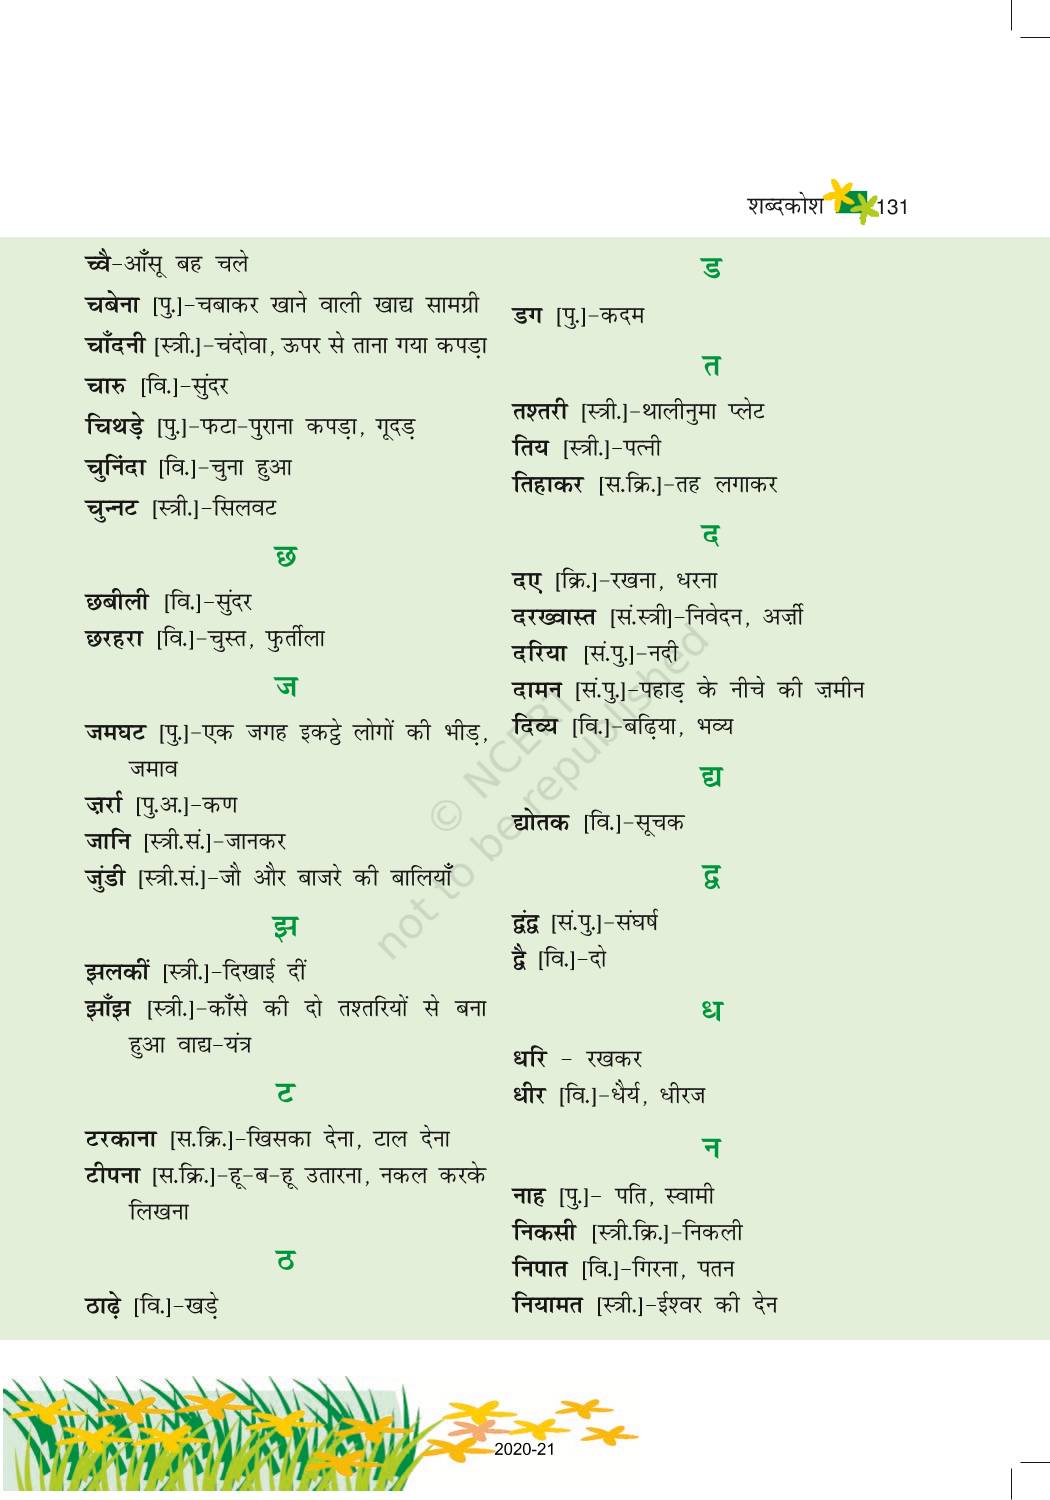 शब्दकोश 131
च्वै–आँसू बह चले
चबेना [पु.]–चबाकर खाने वाली खाद्य सामग्री
चाँदनी [स्त्री.]–चंदोवा, ऊपर से ताना गया कपड़ा
चारु [वि.]–सुंदर
चिथड़े [पु.]–फटा–पुराना कपड़ा, गूदड़
चुनिंदा [वि.]–चुना हुआ
चुन्नट [स्त्री.]–सिलवट
छ
छबीली [वि.]–सुंदर
छरहरा [वि.]–चुस्त, फुर्तीला
ज
जमघट [पु.]–एक जगह इकट्ठे लोगों की भीड़,
जमाव
ज़र्रा [पु.अ.]–कण
जानि [स्त्री.सं.]–जानकर
जुंडी [स्त्री.सं.]–जौ और बाजरे की बालियाँ
झ
झलकीं [स्त्री.]–दिखाई दीं
झाँझ [स्त्री.]–काँसे की दो तश्तरियों से बना
हुआ वाद्य–यंत्र
ट
टरकाना [स.क्रि.]–खिसका देना, टाल देना
टीपना [स.क्रि.]–हू–ब–हू उतारना, नकल करके
लिखना
ठ
ठाढ़े [वि.]–खड़े
ड
डग [पु.]–कदम
त
तश्तरी [स्त्री.]–थालीनुमा प्लेट
तिय [स्त्री.]–पत्नी
तिहाकर [स.क्रि.]–तह लगाकर
द
दए [क्रि.]–रखना, धरना
दरख्वास्त [सं.स्त्री]–निवेदन, अर्ज़ी
दरिया [सं.पु.]–नदी
दामन [सं.पु.]–पहाड़ के नीचे की ज़मीन
दिव्य [वि.]–बढ़िया, भव्य
द्य
द्योतक [वि.]–सूचक
द्व
द्वंद्व [सं.पु.]–संघर्ष
द्वै [वि.]–दो
ध
धरि – रखकर
धीर [वि.]–धैर्य, धीरज
न
नाह [पु.]– पति, स्वामी
निकसी [स्त्री.क्रि.]–निकली
निपात [वि.]–गिरना, पतन
नियामत [स्त्री.]–ईश्वर की देन
© NCERT
not to be republished
2020-21